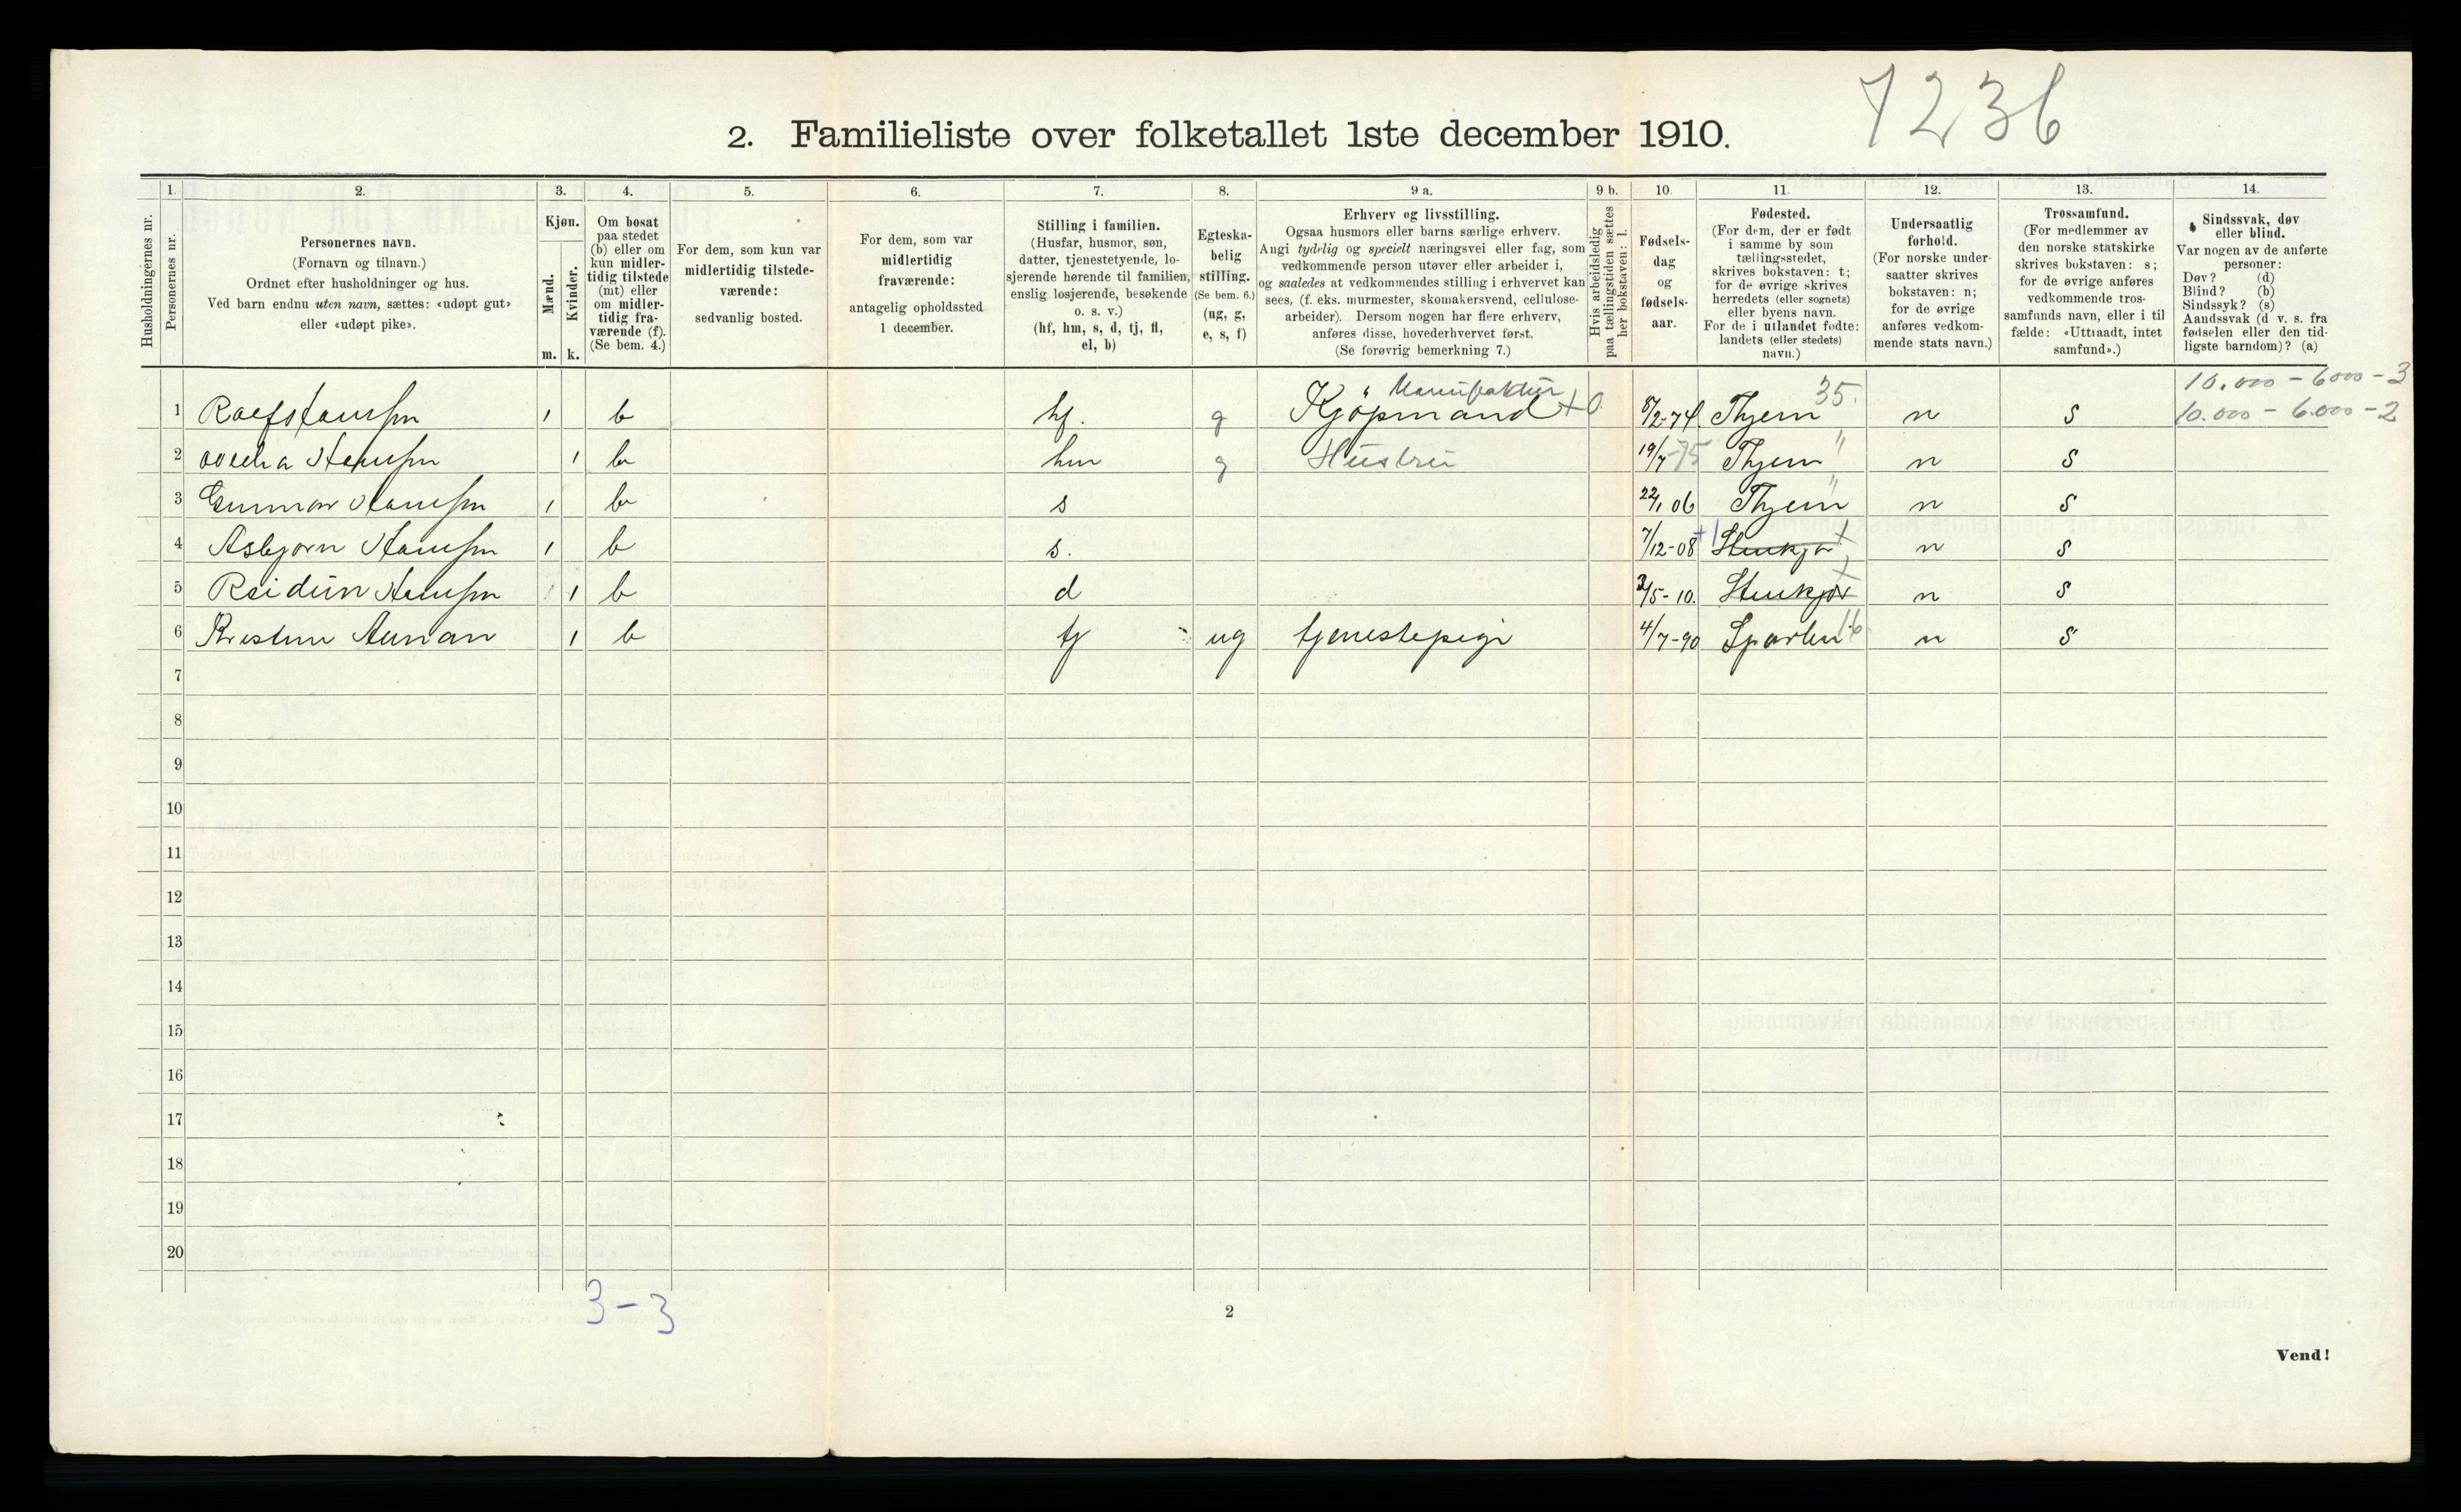 7236
2. Familieliste over folketallet 1ste december 1910.
Husholdningernes nr.
1. Personernes nr.
2. Personernes navn.
(Fornavn og tilnavn.)
Ordnet efter husholdninger og hus.
Ved barn endnu uten navn, sættes: «udøpt gut»
eller «udøpt pike».
3. Kjøn.
Mænd. m.
Kvinder. k.
4. Om bosat
paa stedet
(b) eller om
kun midler-
tidig tilstede
(mt) eller
om midler-
tidig fra-
værende (f).
(Se bem. 4.)
5. For dem, som kun var
midlertidig tilstede-
værende:
sedvanlig bosted.
6. For dem, som var
midlertidig
fraværende:
antagelig opholdssted
1 december.
7. Stilling i familien.
(Husfar, husmor, søn,
datter, tjenestetyende, lo-
sjerende hørende til familien,
enslig losjerende, besøkende
o. s. v.)
(hf, hm, s, d, tj, fl,
el, b)
8. Egteska-
belig
stilling.
(Se bem. 6.)
(ug, g,
e, s, f)
9 a. Erhverv og livsstilling.
Ogsaa husmors eller barns særlige erhverv.
Angi tydelig og specielt næringsvei eller fag, som
vedkommende person utøver eller arbeider i,
og saaledes at vedkommendes stilling i erhvervet kan
sees, (f. eks. murmester, skomakersvend, cellulose-
arbeider). Dersom nogen har flere erhverv,
anføres disse, hovederhvervet først.
(Se forøvrig bemerkning 7.)
9 b. Hvis arbeidsledig
paa tællingstiden sættes
her bokstaven: l.
10. Fødsels-
dag
og
fødsels-
aar.
11. Fødested.
(For dem, der er født
i samme by som
tællingsstedet,
skrives bokstaven: t;
for de øvrige skrives
herredets (eller sognets)
eller byens navn.
For de i utlandet fødte:
landets (eller stedets)
navn.)
12. Undersaatlig
forhold.
(For norske under-
saatter skrives
bokstaven: n;
for de øvrige
anføres vedkom-
mende stats navn.)
13. Trossamfund.
(For medlemmer av
den norske statskirke
skrives bokstaven: s;
for de øvrige anføres
vedkommende tros-
samfunds navn, eller i til
fælde: «Uttraadt, intet
samfund».)
14. Sindssvak, døv
eller blind.
Var nogen av de anførte
personer:
Døv? (d)
Blind? (b)
Sindssyk? (s)
Aandssvak (d v. s. fra
fødselen eller den tid-
ligste barndom)? (a)
Manufaktur 35. 10.000 - 6000 - 3
1 1 b hf. g Kjöpmand + 0. 8/2-74. n s 10.000 - 6.000 - 2
2 1 b hm g Hustru 19/7-75 " n s
3 Gunnar 1 b s 22/1 06 " n s
4 Asbjørn 1 b s. 7/12-08 n s
5 Reidun 1 b d 10. n s
6 Aunan 1 b tj ug tjenestepige 4/7-90 Sparbu 16 n s
7
8
9
10
11
12
13
14
15
16
17
18
19
20
3 - 3
2
Vend!